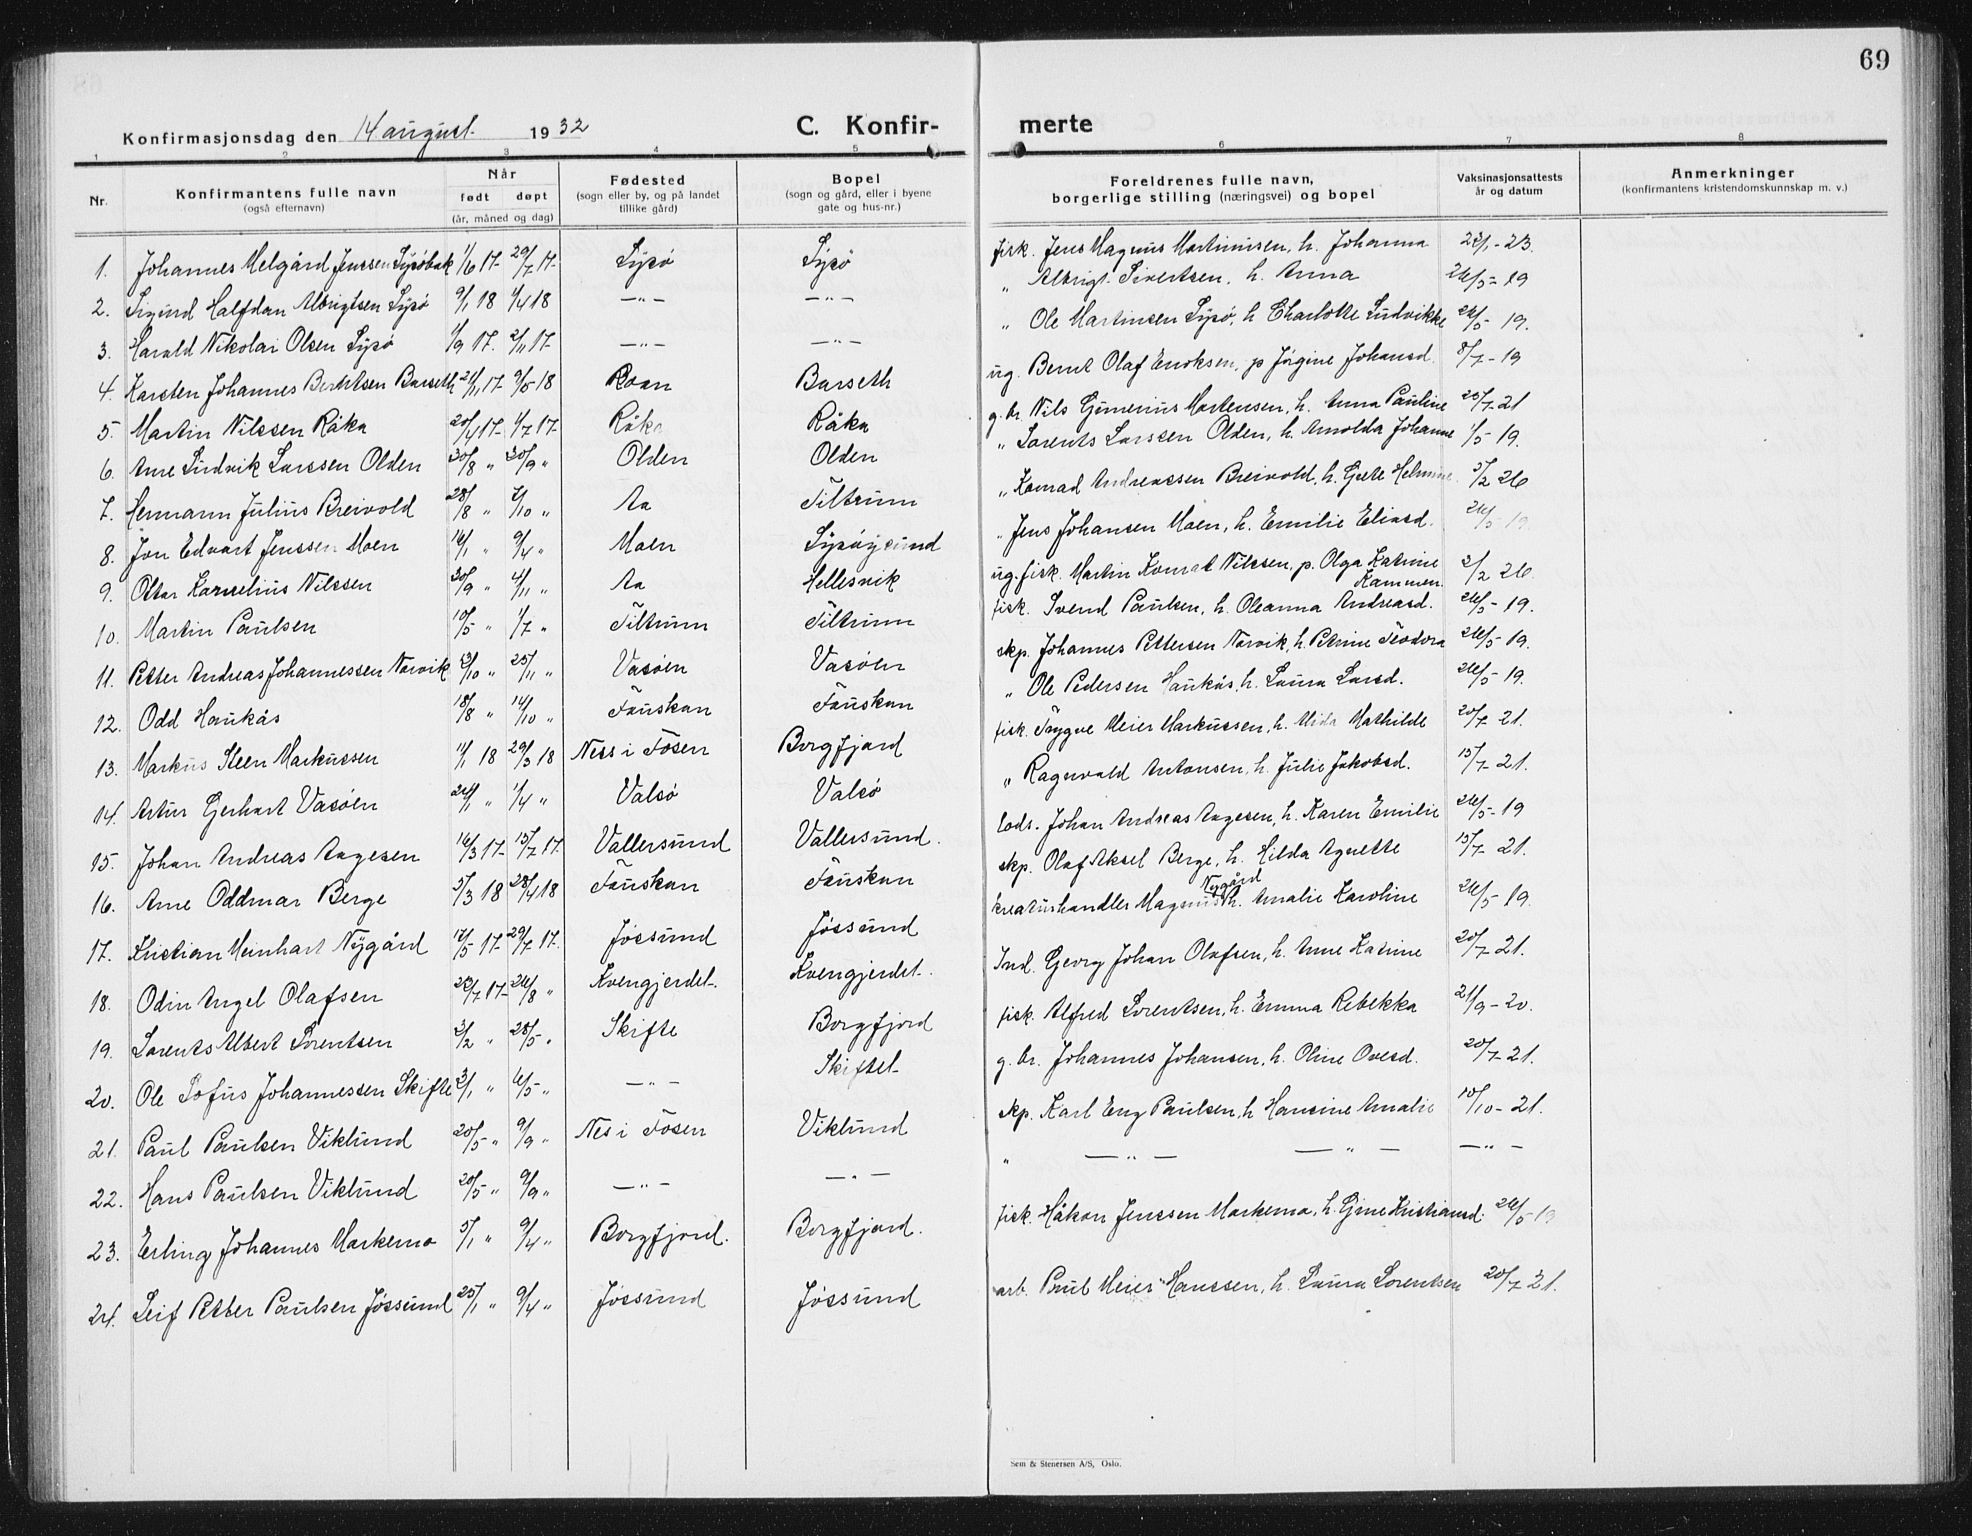 69
Konfirmasjonsdag den 14 august 1932
C. Konfir-
merte
1 2 3 4 5 6 7 8
Nr.
Konfirmantens fulle navn
(også efternavn)
Når
født døpt
(år, måned og dag)
Fødested
(sogn eller by, og på landet
tillike gård)
Bopel
(sogn og gård, eller i byene
gate og hus-nr.)
Foreldrenes fulle navn,
borgerlige stilling (næringsvei) og bopel
Vaksinasjonsattests
år og datum
Anmerkninger
(konfirmantens kristendomskunnskap m. v.)
1. Johannes Melgård Jenssen 1/6 17 29/7 17 fisk. Jens Magnus Martinusen, h. Johanna - 23.
2. Sigurd Halfdan Albrigtsen 9/1 18 1/4 18 —„— —„— „ Albrigt Sivertsen, h. Anna 26/5 - 19
3. Harald Nikolai Olsen 1/9 17. 2/11 17 —„— —„— „ Ole Martinsen h. Charlotte Ludvikke 26/5 - 19.
4. Karsten Johannes Berntsen Barseth 17 9/5 18 Roan Barseth ug. Bernt Olaf Enoksen, p Jørgine Johansd. 8/7 - 19
5. Martin Nilssen Råka 20/4 17 1/7 17 Råka Råka g. br. Nils Martensen, h. Anna Pauline 20/7 - 21
6. Arne Ludvik Larssen Olden 30/8 „ 30/9 „ Olden Olden „ Lorents Larssen Olden, h. Arnolda Johanne 1/5 - 19.
7. Hermann Julius Breivold 28/8 „ 7/10 „ Aa Tiltrum „ Konrad Andreassen Breivold, h. Grete 5/2 26
8. Jon Edvart Jenssen Moen 16/1 „ 9/4 „ Moen „ Jens Johansen Moen, h. Emilie Eliasd. 26/5 19
9. Ottar Kornelius Nilssen 30/9 „ 4/11 „ Aa Hellesvik ug. fisk. Martin Konrad Nilssen, p. Olga Katrine
Kammen. 2/2 26
10. Martin Paulsen 10/5 „ 1/7 „ Tiltrum Tiltrum fisk. Svend Paulsen, h. Oleanna Andreasd. 26/5 - 19.
11. Petter Andreas Johannessen Narvik 2/10 „ 25/11 „ Vasøen Vasøen skp. Johannes Pettersen Narvik, h. Petrine Teodora 26/5 - 19.
12. Odd Haukås 18/8 „ 14/10 „ Fauskan Fauskan „ Ole Pedersen Haukås, h. Laura Larsd. 26/5 - 19.
13. Markus Steen Markussen 11/1 18 29/3 18 Ness i Fosen Borgfjord fisk. Trygve Meier Markussen, h. Mida Mathilde 20/7 21.
14. Artur Gerhart Vasøen 24/1 „ 1/4 „ Valsø Valsø „ Ragnvald Antonsen, h. Julie Jakobsd. 15/7 - 21.
15. Johan Andreas Aagesen 16/3 17 15/7 17. Vallersund Vallersund. lods. Johan Andreas Aagesen, h. Karen Emilie 26/5 - 19
16. Arne Oddmar Berge 5/3 18 28/4 18 Fauskan Fauskan skp. Olaf Aksel Berge, h. Hilda Agnette 15/7 - 21.
17. Kristian Meinhart Nygård 17/5 17 29/7 17. Jøssund Jøssund kreaturhandler Magnus Nygård h. Amalie Karoline 26/5 - 19.
18. Odin Angel Olafsen 22/7 17 26/8 „ Kvengjerdet. Kvengjerdet. Ind. Georg Johan Olafsen, h. Anne Katrine 20/7 - 21.
19. Lorents Albert Lorentsen 2/2 „ 28/5 „ Skifte Borgfjord fisk. Alfred Lorentsen, h. Emma Rebekka 21/9 - 20.
20. Ole Sofus Johannessen Skifte 2/1 „ 6/5 „ —„— Skiftet g. br. Johannes Johansen, h. Oline Ovesd. 20/7 - 21.
21. Paul Paulsen Viklund 20/5 „ 9/9 „ Nes i Fosen Viklund skp. Karl Eng Paulsen, h Hansine Amalie 10/10 - 21.
22. Hans Paulsen Viklund 20/5 „ 9/9 „ —„— —„— „ —„— —„— —„—
23. Erling Johannes Markemo 5/1 „ 9/4 „ Borgfjord. Borgfjord. fisk. Håkon Jenssen Markemo, h. Gine Kristiansd. 26/5 19
24. Leif Petter Paulsen Jøssund 25/1 „ 9/4 „ Jøssund Jøssund arb. Paul Meier Hanssen, h. Laura Lorentsen 20/7 21.
Sem & Stenersen A/S, Oslo.